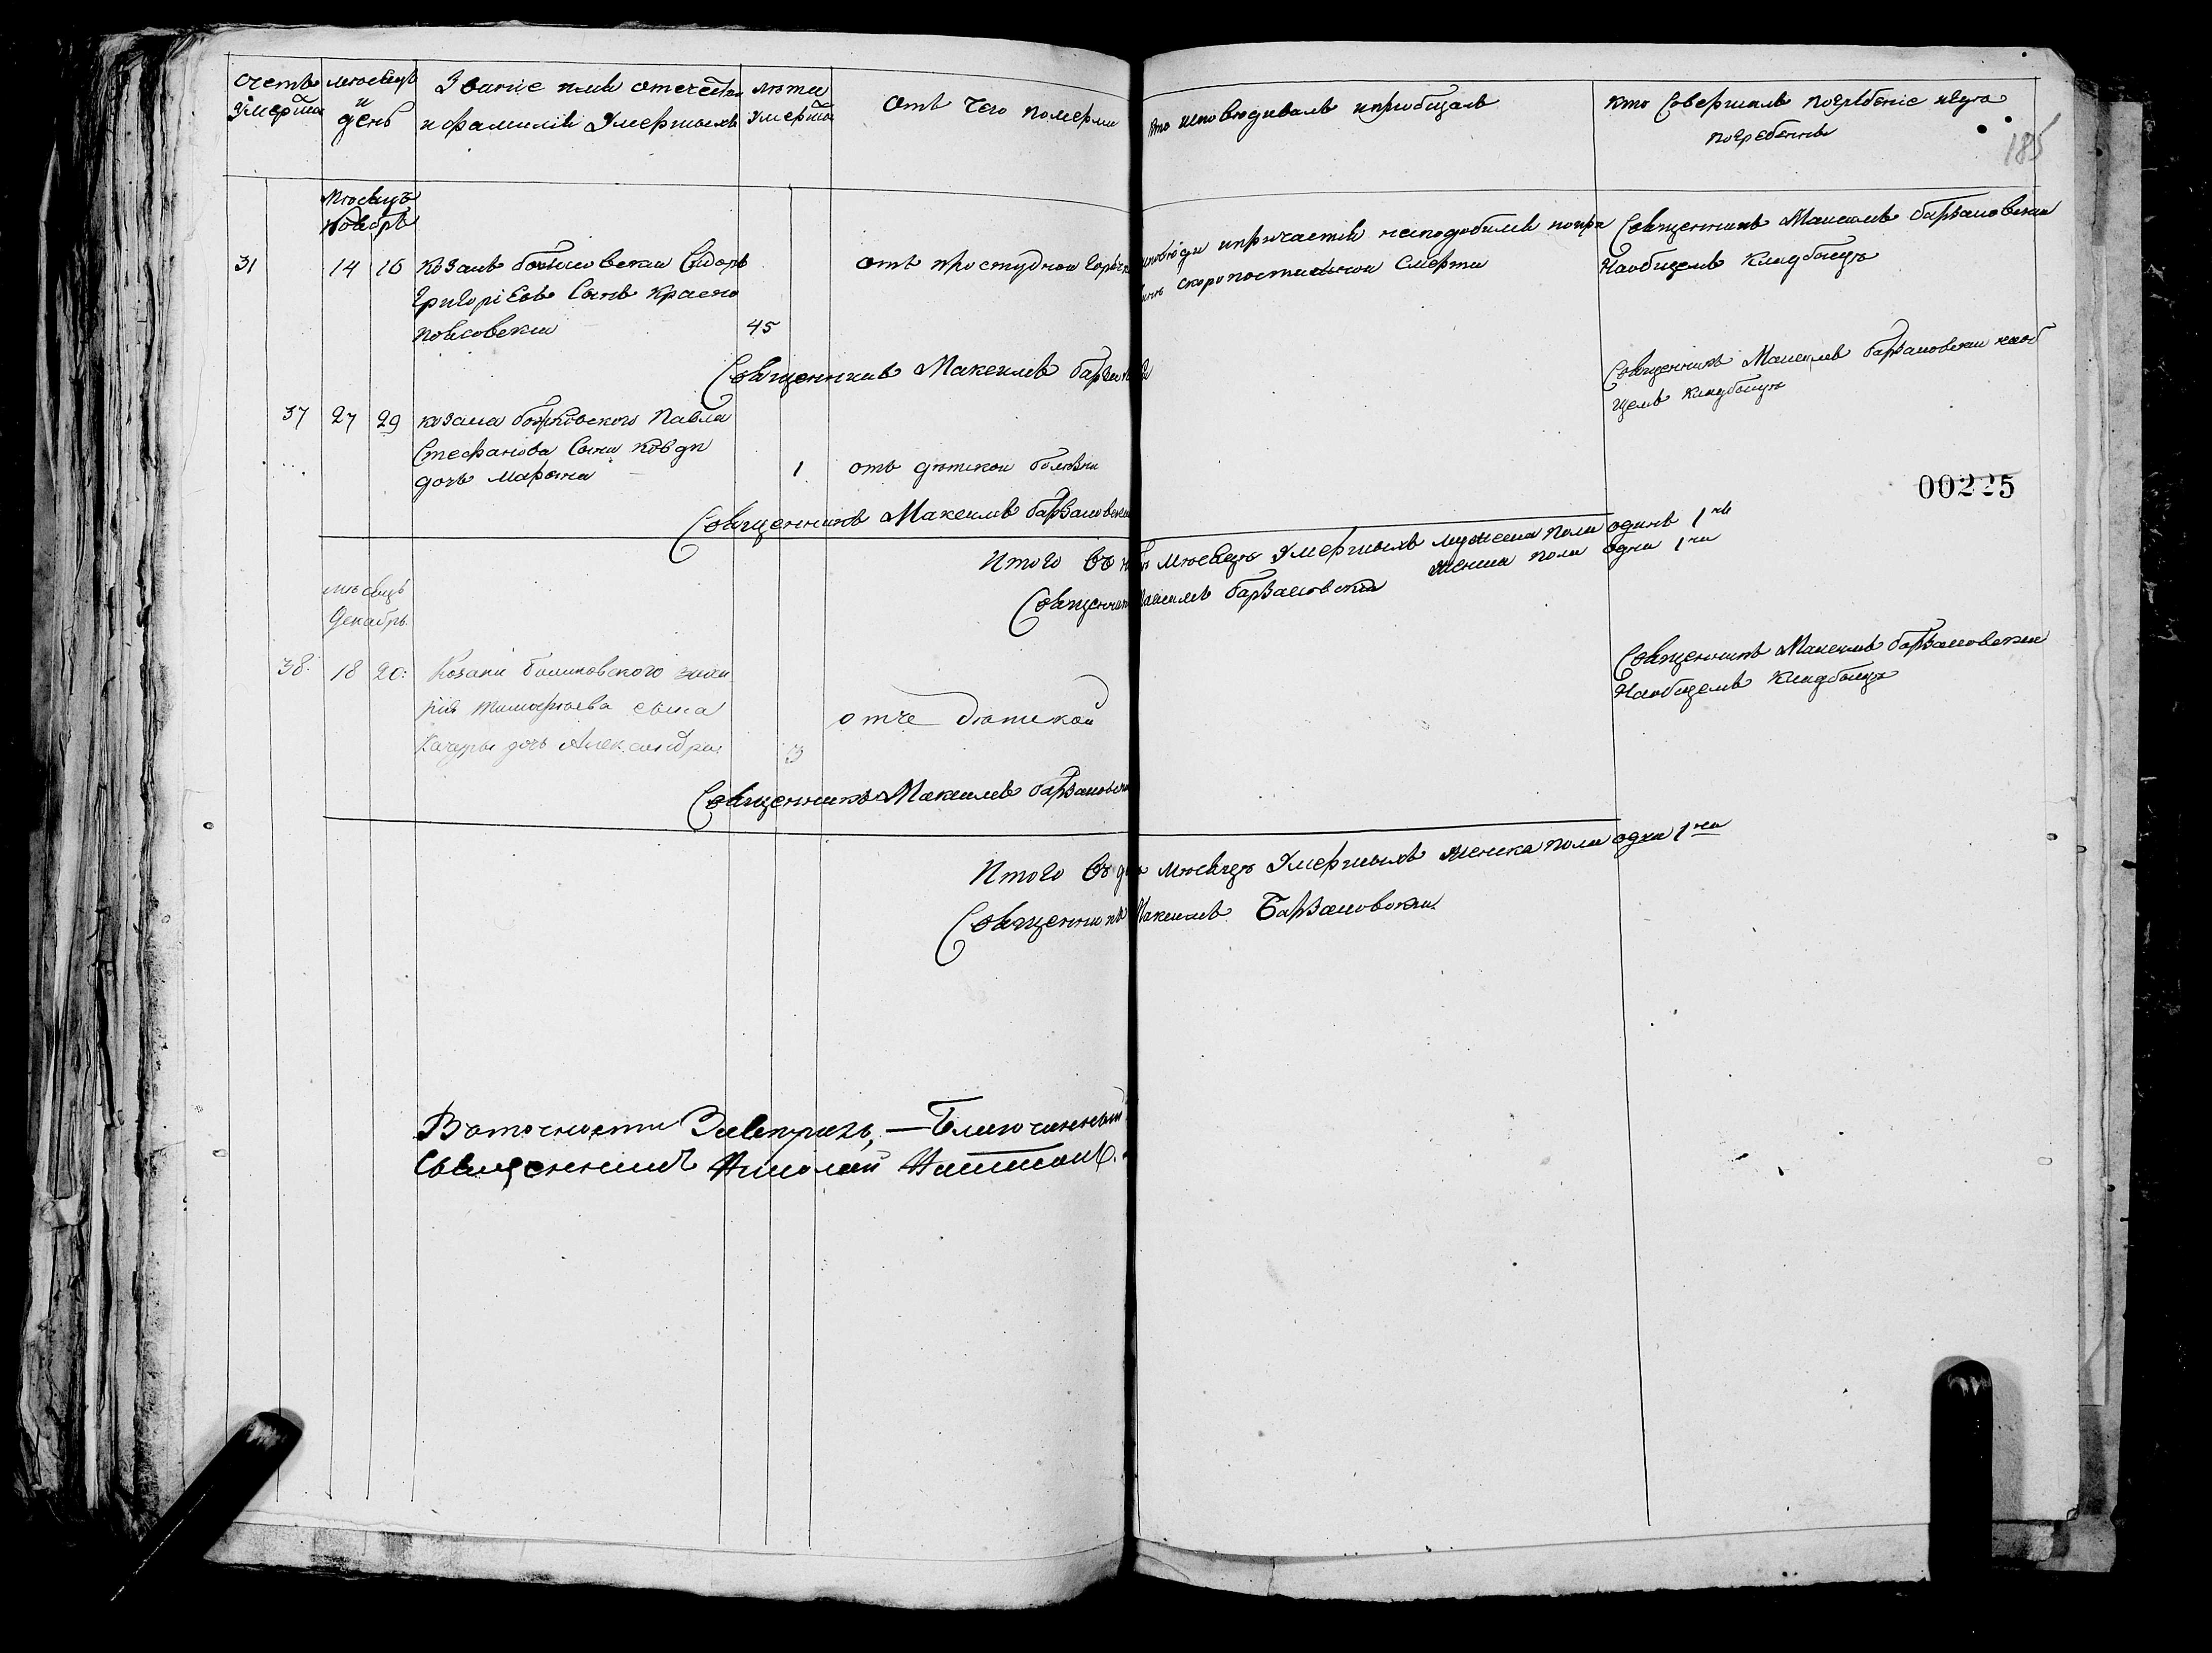 счетъ Умершы
мѣсецъ и день
Званіе имя отечество и фамилія Умершыхъ
лѣта Умершы
Отъ чего померли
кто исповѣдивалъ и пріобщалъ
кто Совершилъ погребеніе и где погребенны
185
мѣсецъ
ноябръ
31 14 16 Козакъ Сидоръ
Григоріевъ Сынъ Красно
45
отъ простудной
исповѣди и причастія неподобился попри
скоропостижной Смерти
Священникъ Максимъ Барзаковскии
Наобщемъ Кладбищѣ
Священникъ Максимъ
37 27 29 козака Павла
Стефанова Сына
дочь Марфа
1 отъ дѣтской болѣзни
Священникъ Максимъ Барзаковскии наоб
щемъ кладбищѣ
00225
Священникъ Максимъ Барзаковскии
Итого Въ мѣсецѣ Умершыхъ мужеска пола одинъ 1нъ
женска пола одна 1на
Священникъ Максимъ Барзаковскии
мѣсецъ
Декабръ
38. 18 20: Козака
Тимофѣева сына
дочь Александра
3
отъ дѣтской
Священникъ Максимъ Барзаковскии
Наобщемъ Кладбищѣ
Священникъ Максимъ Барзаковскии
Итого Въ мѣсецѣ Умершыхъ женска пола одна 1на
Священникъ Максимъ Барзаковскии
Благочинный
Священникъ Николай